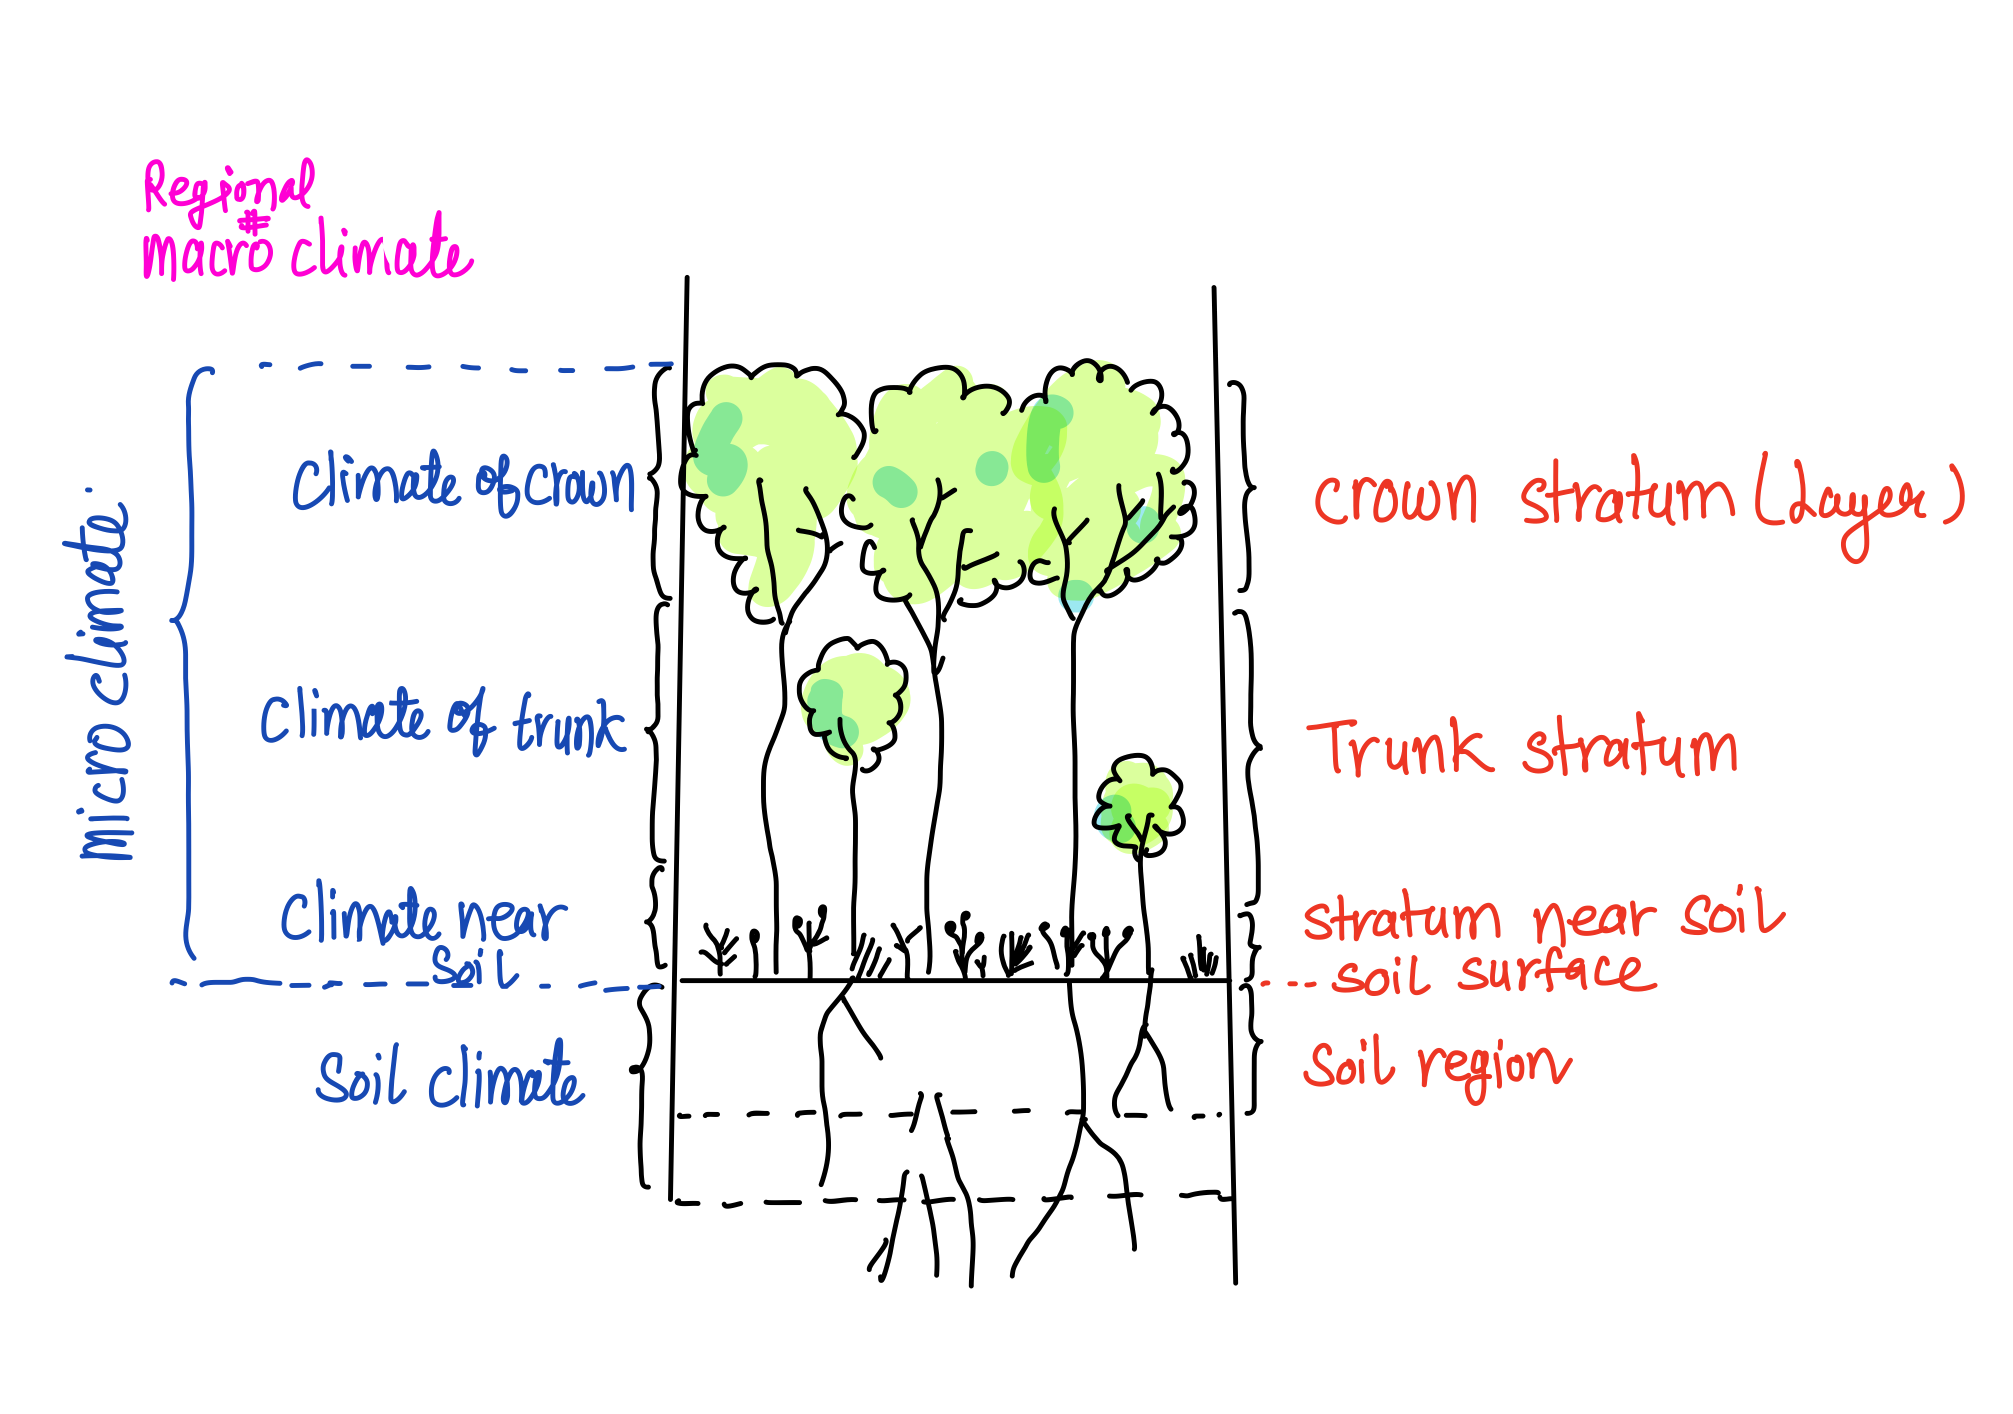 Regional
macro climate
micro climate
climate of crown
climate of trunk
climate near
soil
soil climate
crown stratum (Layer)
Trunk stratum
stratum near soil
soil surface
soil region